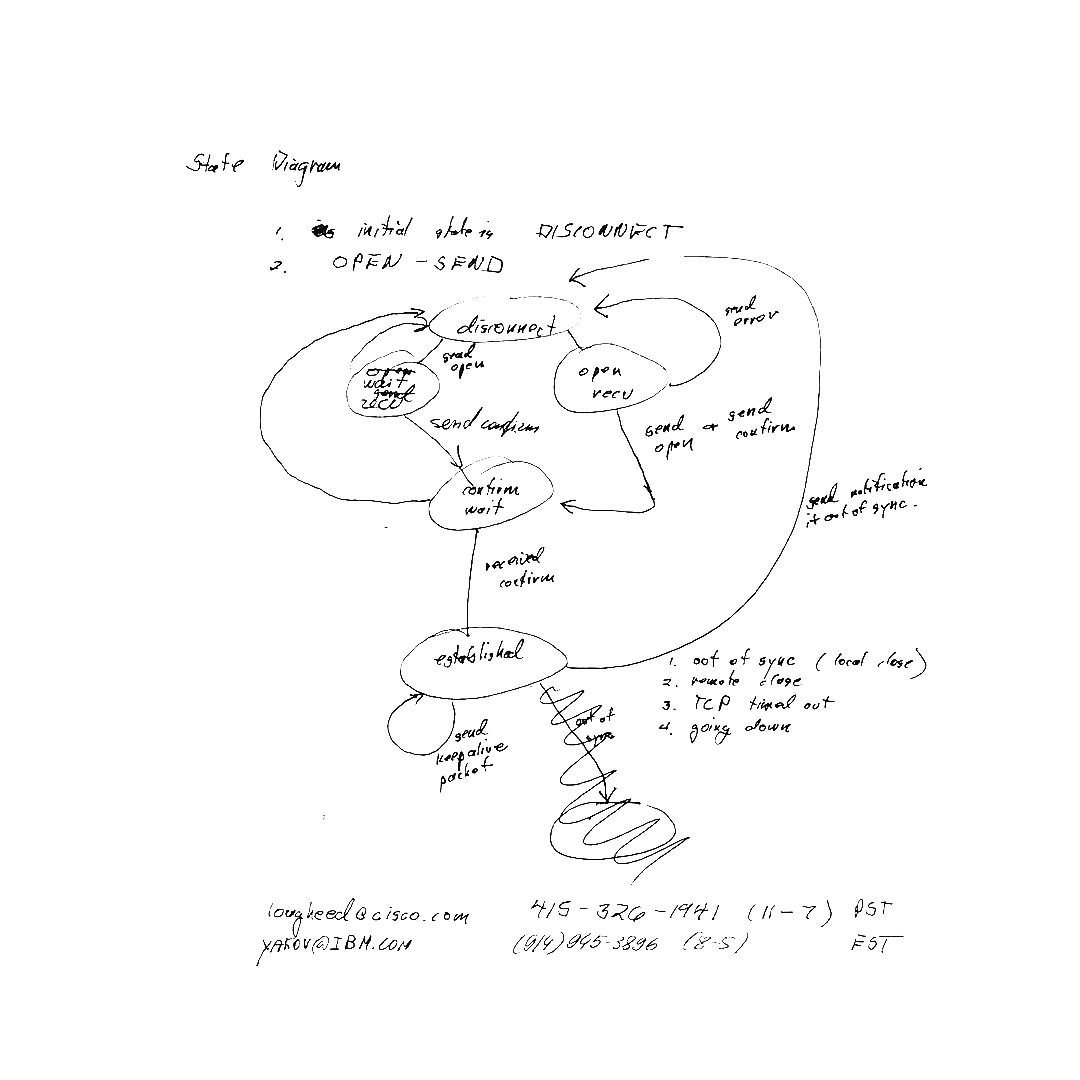 State Diagram
1. initial state is DISCONNECT
2. OPEN - SEND
disconnect
send error
send open
open
wait
recv
open
recv
send confirm
send open + send confirm
confirm
wait
send notification
if out of sync.
received
confirm
established
1. out of sync (local close)
2. remote close
3. TCP timed out
4. going down
out of
sync
send
keepalive
packet
lougheed@cisco.com 415-326-1941 (11-7) PST
YAKOV@IBM.COM (914)945-3896 (8-5) EST